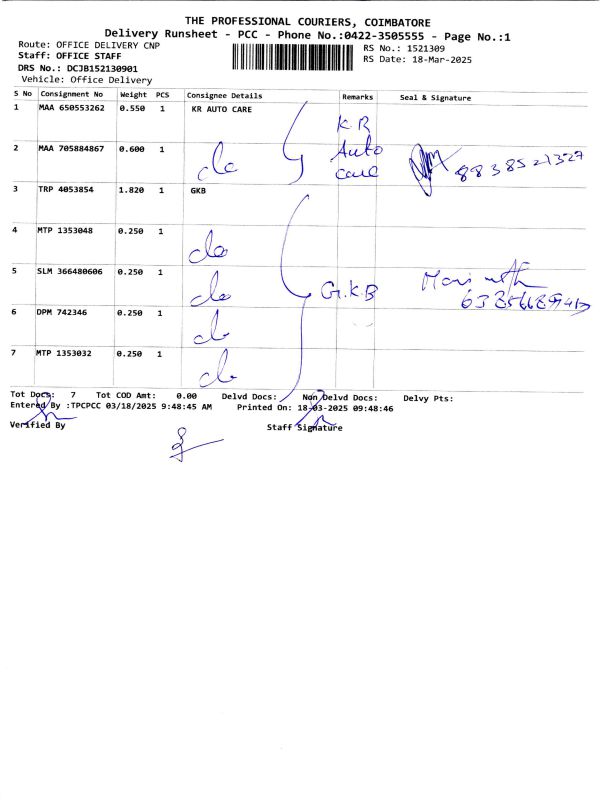 THE PROFESSIONAL COURIERS, COIMBATORE
Delivery Runsheet - PCC - Phone No.:0422-3505555 - Page No.:1
Route: OFFICE DELIVERY CNP
RS No.: 1521309
Staff: OFFICE STAFF
RS Date: 18-Mar-2025
DRS No.: DCJB152130901
Vehicle: Office Delivery
S No Consignment No Weight PCS Consignee Details Remarks Seal & Signature
1 MAA 650553262 0.550 1 KR AUTO CARE K.R
2 MAA 705884867 0.600 1 do Auto care
3 TRP 4053854 1.820 1 GKB
4 MTP 1353048 0.250 1 do
5 SLM 366480606 0.250 1 do G.K.B
6 DPM 742346 0.250 1 do
7 MTP 1353032 0.250 1 do
Tot Docs: 7 Tot COD Amt: 0.00 Delvd Docs: Non Delvd Docs: Delvy Pts:
Entered By :TPCPCC 03/18/2025 9:48:45 AM Printed On: 18-03-2025 09:48:46
Verified By Staff Signature